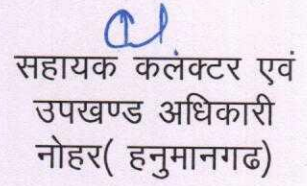 सहायक कलंक्टर एवं
उपखण्ड अधिकारी
नोहर( हनुमानगढ)